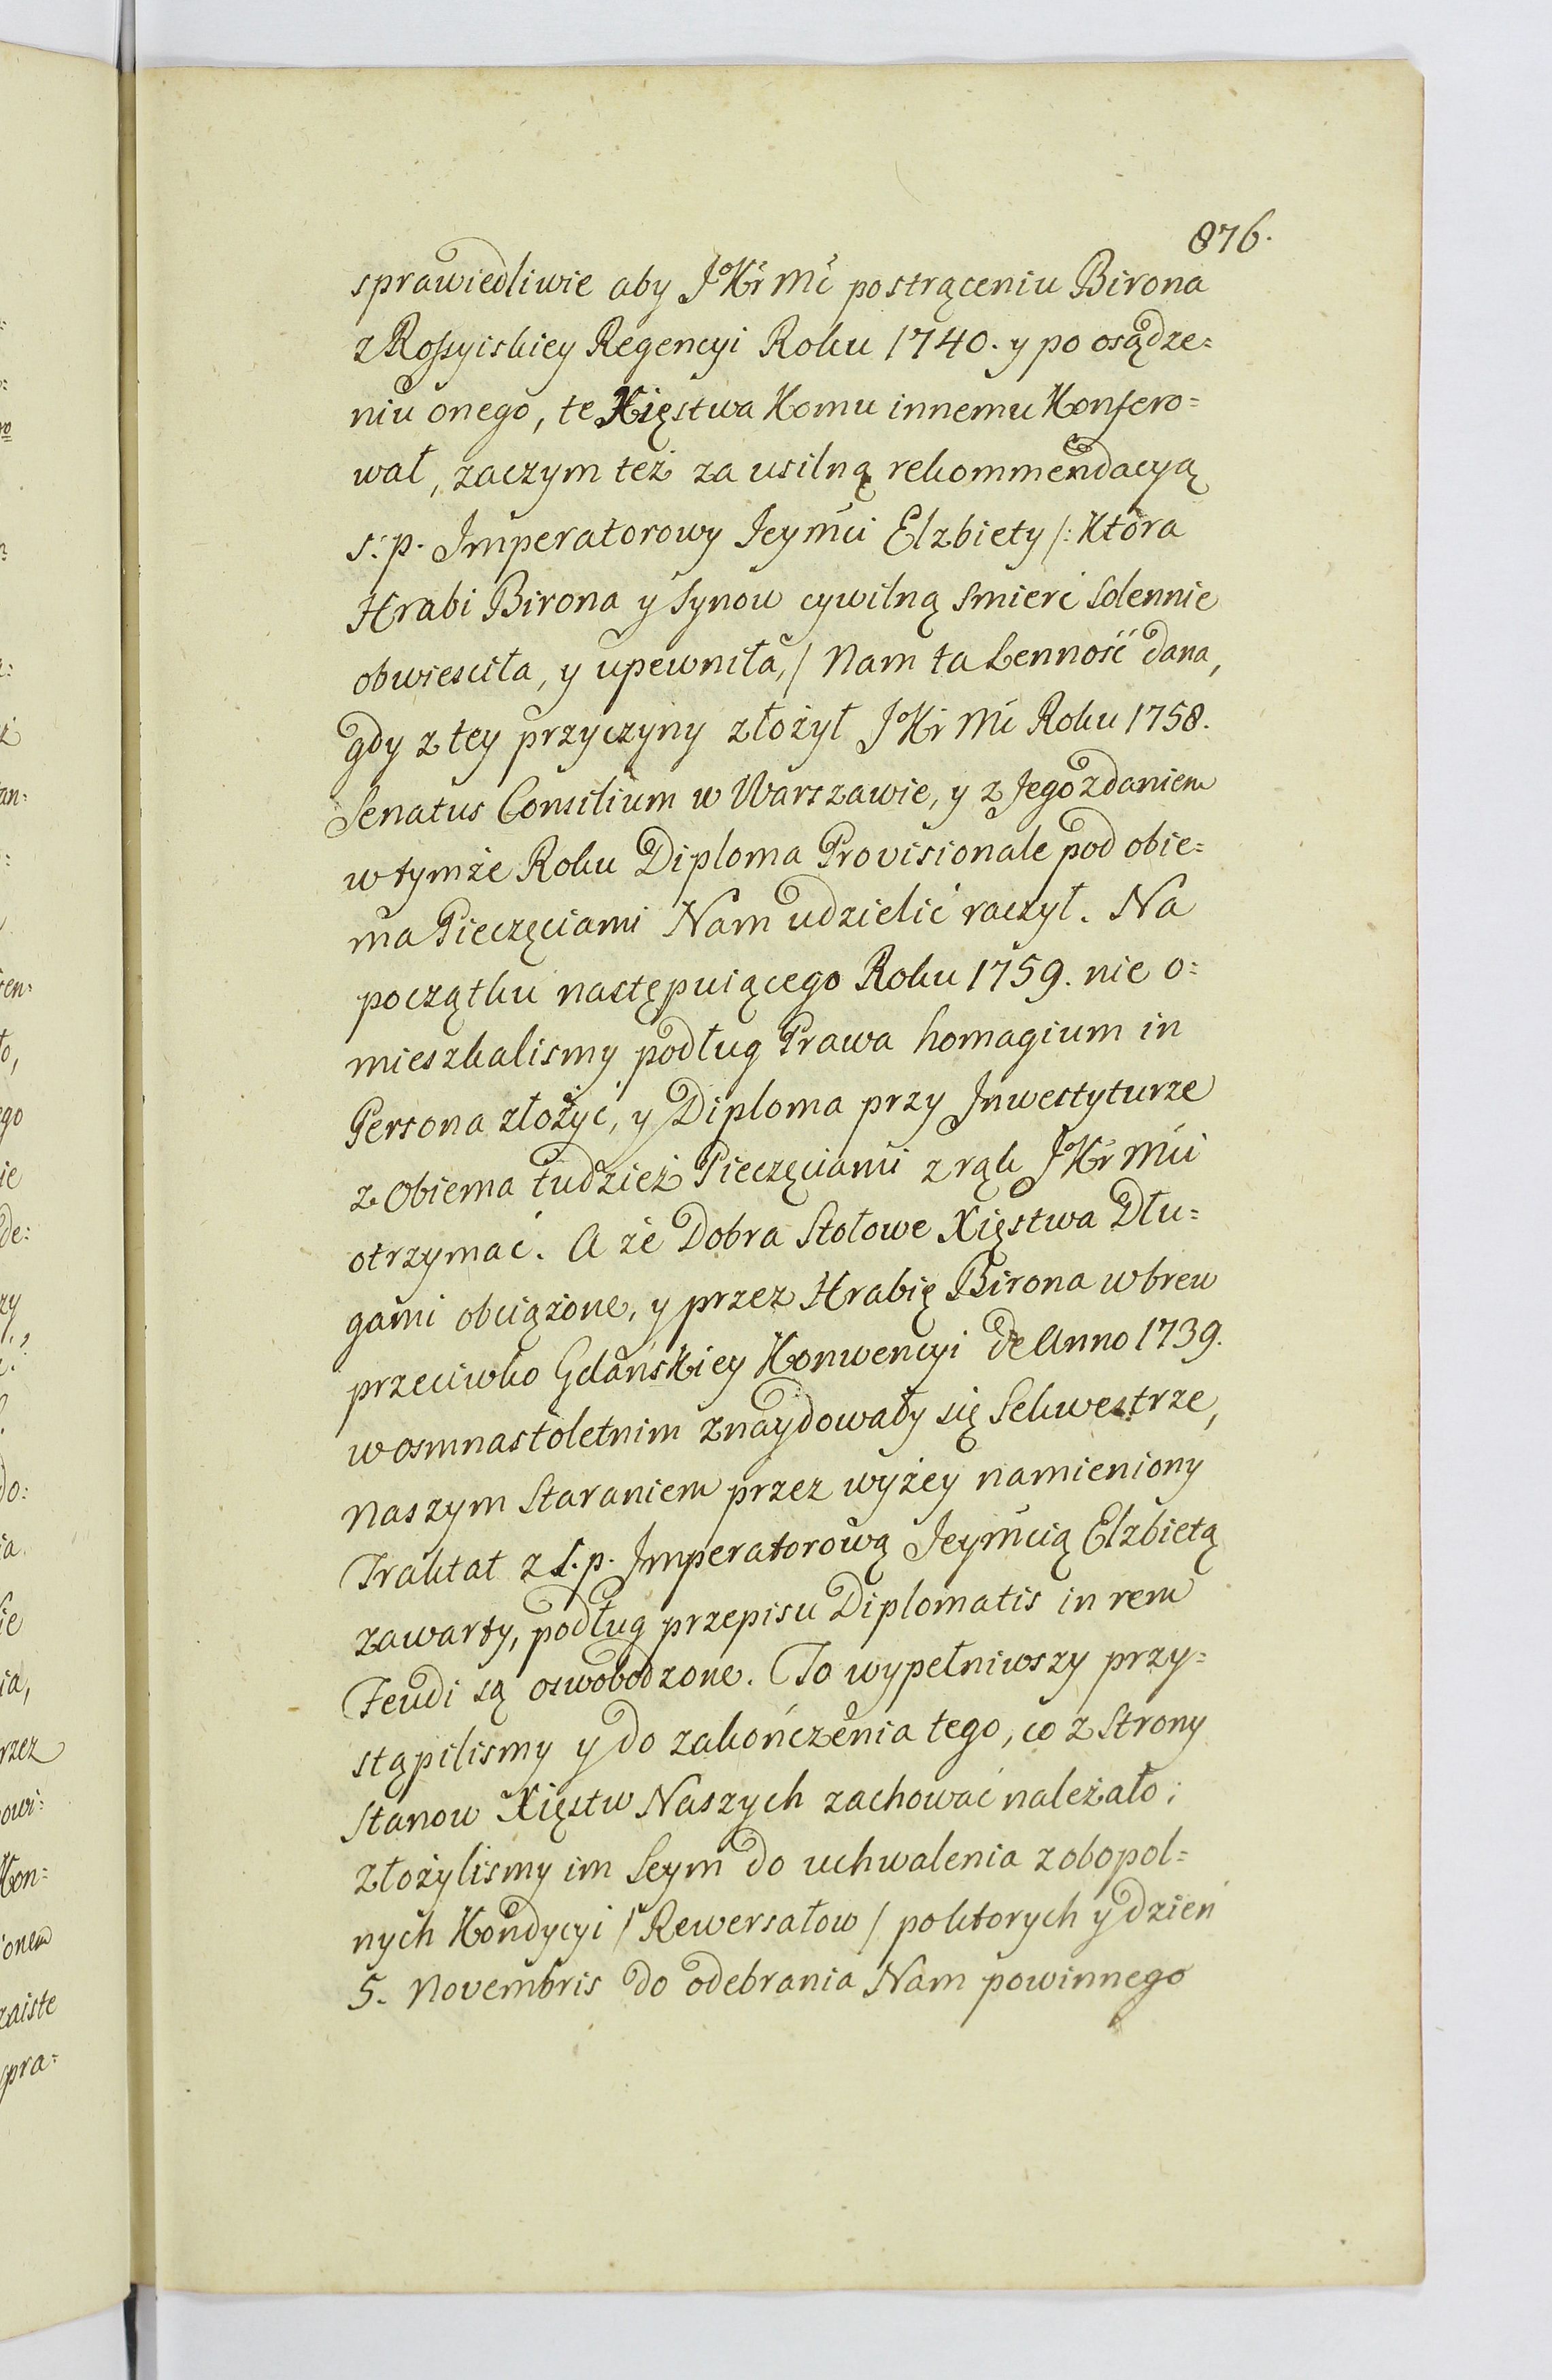 876.
sprawiedliwie aby JKr Mć po strąceniu Birona
z Rossyiskiey Regencyi Roku 1740. y po osądze=
niu onego, te Xięstwa Komu innemu Konfero=
wał, zaczym też za usilną rekommendacyą
s: p. Imperatorowy Ieymci Elzbiety /: Ktora
Hrabi Birona y Synow cywilną smierć Solennie
obwiesciła, y upewniła, / Nam ta Lenność dana,
gdy z tey przyczyny złożył JKr Mć Roku 1758.
Senatus Consilium w Warszawie, y z Jego zdaniem
w tymże Roku Diploma Provisionale pod obie=
ma Pieczęciami Nam udzielić raczył. Na
początku następuiącego Roku 1759. nie o=
mieszkalismy podług Prawa homagium in
Persona złożyć, y Diploma przy Inwestyturze
z Obiema tudzież Pieczęciami z rąk JKr Mći
otrzymać. A że Dobra Stołowe Xięstwa Dłu=
gami obciążone, y przez Hrabię Birona wbrew
przeciwko Gdańskiey Konwencyi de Anno 1739.
w osmnastoletnim znaydowały się Sekwestrze,
Naszym Staraniem przez wyżey namieniony
Traktat z S. p. Imperatorową Jeymcią Elzbietą
zawarty, podług przepisu Diplomatis in rem
Feudi są oswobodzone. To wypełniwszy przy=
stąpilismy y do zakończenia tego, co z Strony
Stanow Xięstw Naszych zachować należało;
złożylismy im Seym do uchwalenia zobopol=
nych Kondycyi / Rewersałow / po ktorych y dzień
5. Novembris do odebrania Nam powinnego